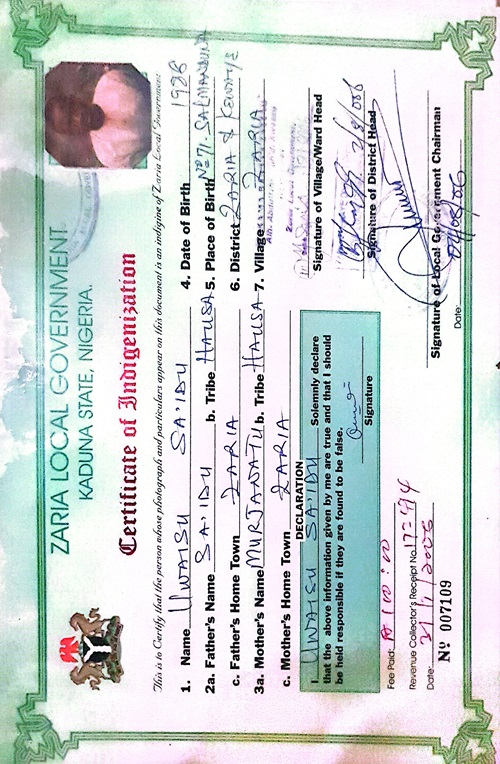 ZARIA LOCAL GOVERNMENT
KADUNA STATE, NIGERIA.
Certificate of Indigenization
This is to Certify that the person whose photograph and particulars appear on this document is an indigine of Zaria Local Government
1. Name UWAISU SA'IDU 4. Date of Birth
2a. Father's Name SA'IDU b. Tribe HAUSA 5. Place of Birth No 71. SALMANDUNA
c. Father's Home Town ZARIA 6. District ZARIA & KEWAYE
3a. Mother's Name MURJANATU b. Tribe HAUSA 7. Village ZARIA
c. Mother's Home Town ZARIA
DECLARATION
I UWAISU SA'IDU Solemnly declare
that the above information given by me are true and that I should
be held responsible if they are found to be false.
Signature
Signature of Village/Ward Head
2/8/006
Signature of District Head
Signature of Local Government Chairman
Date:
Fee Paid: ₦ 100:00
Revenue Collector's Receipt No.
Date:
No 007109